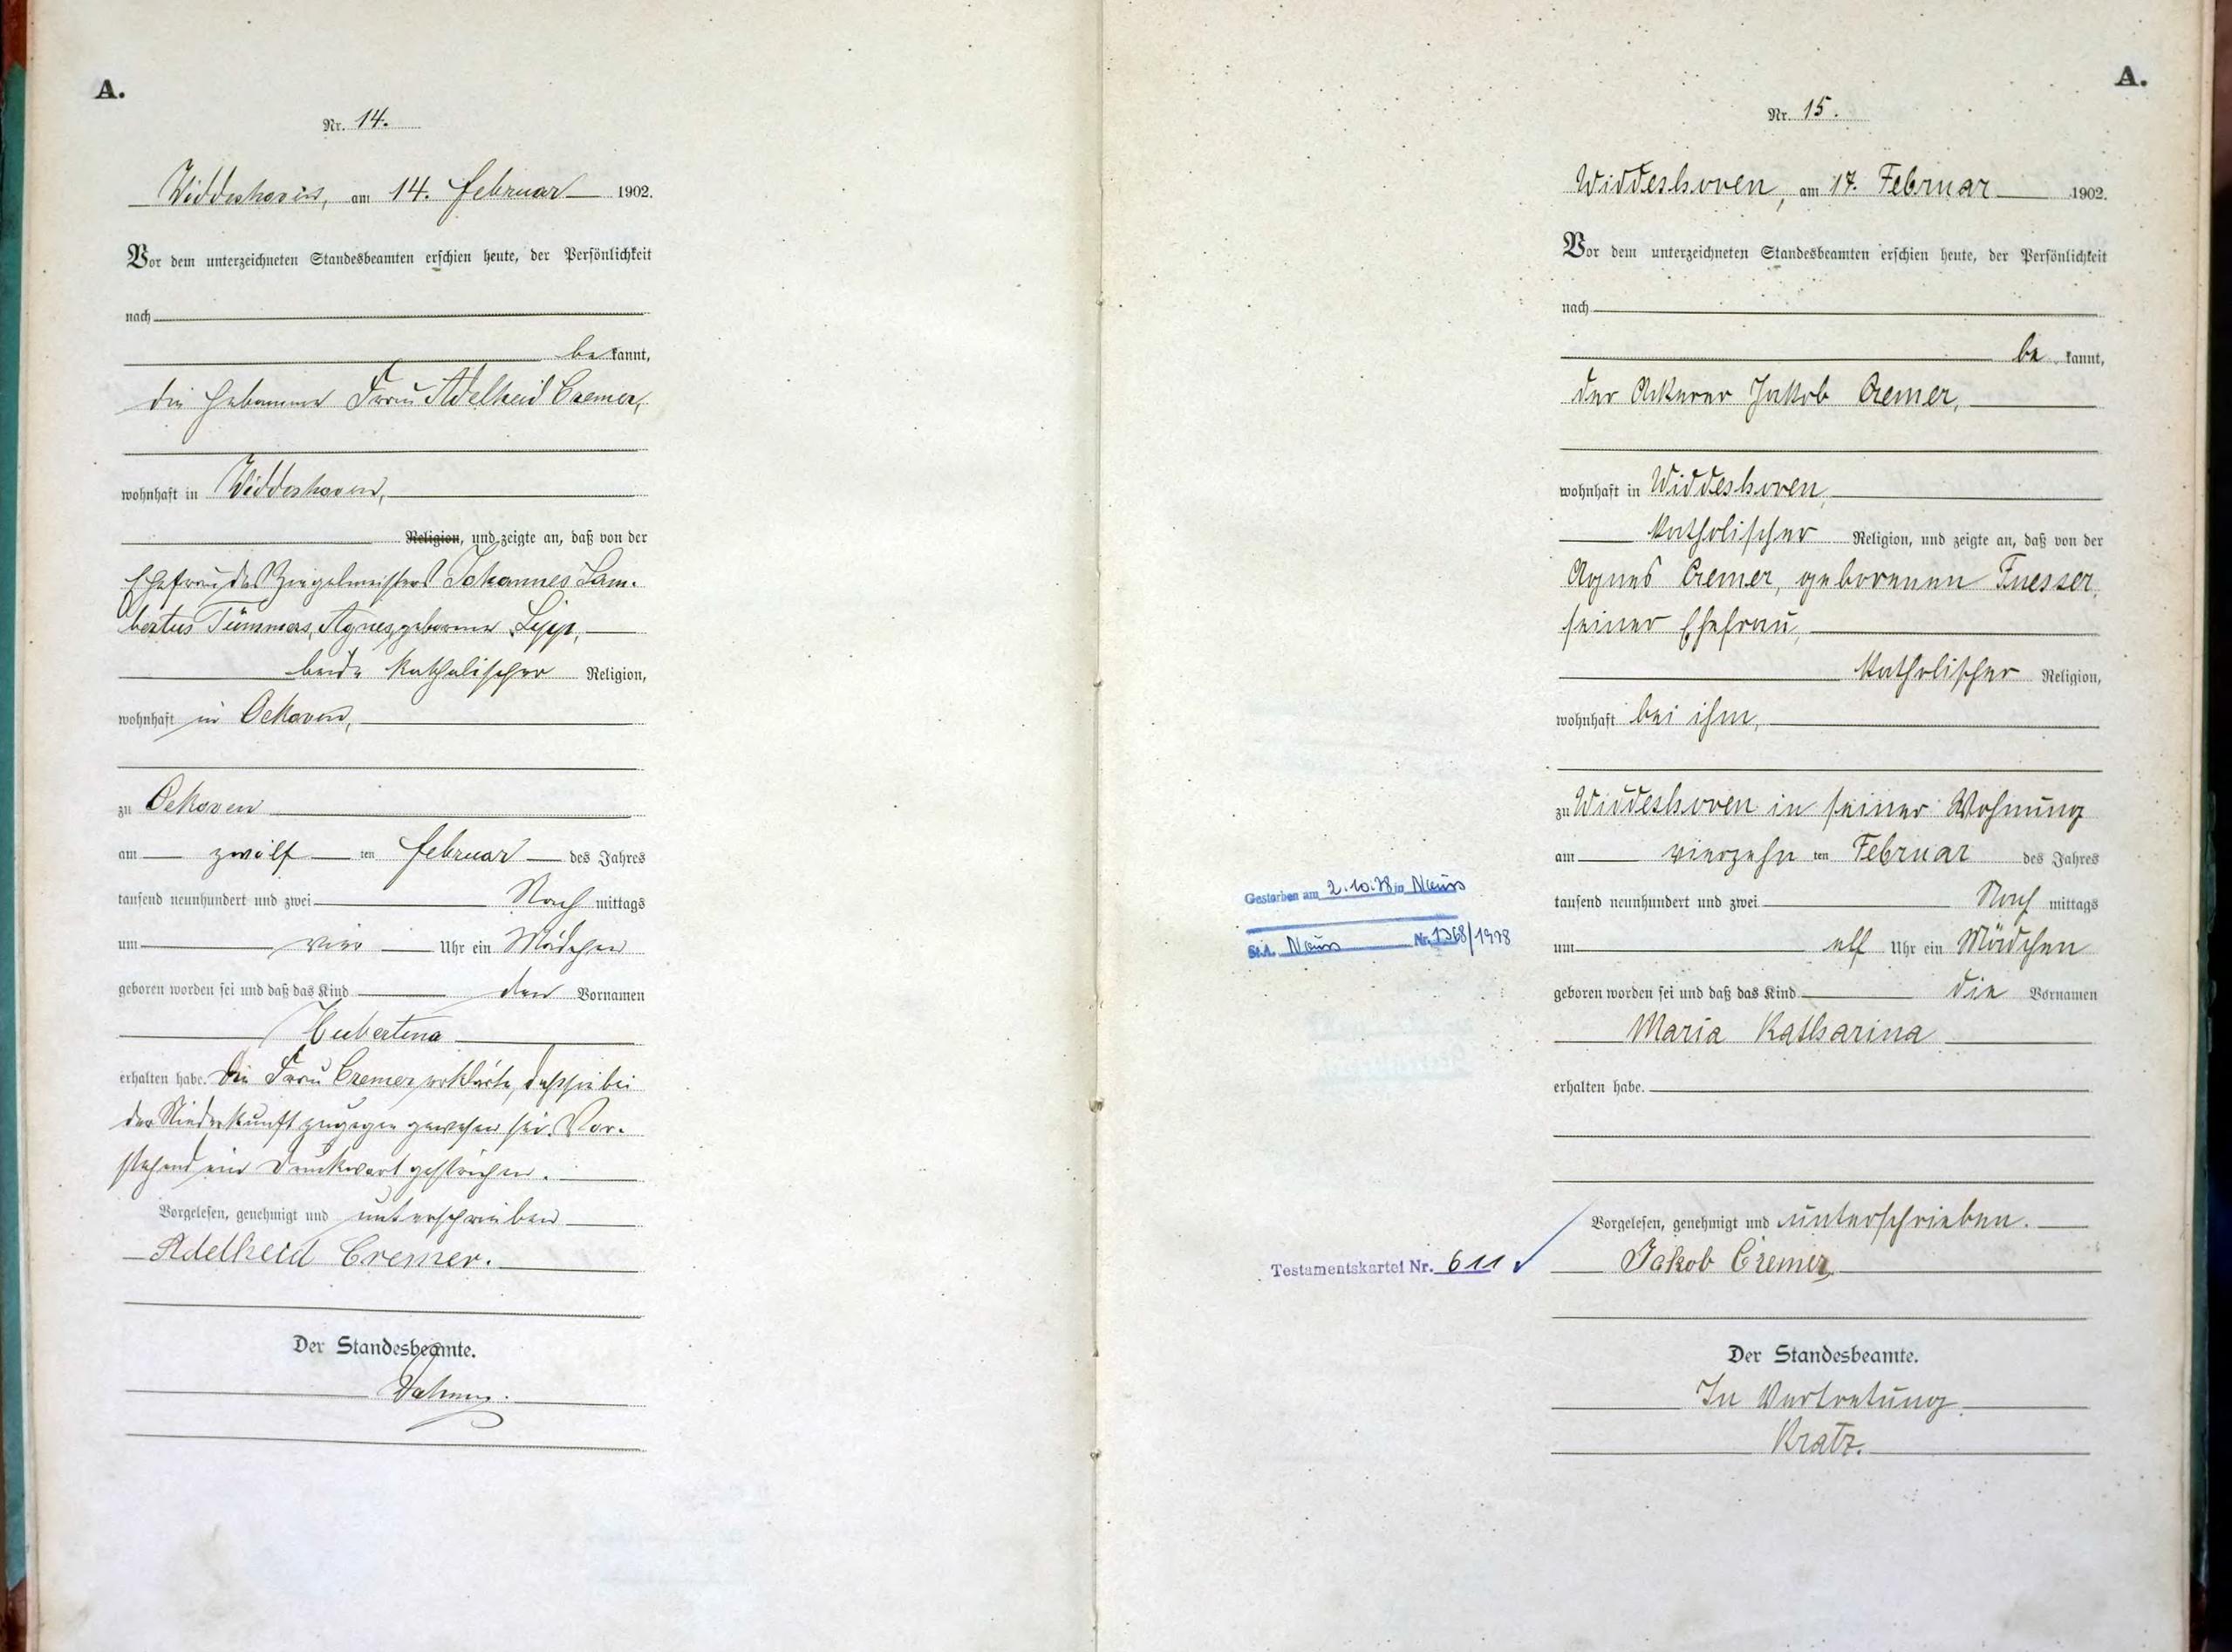 A.
Nr. 14.
Widdeshoven, am 14. Februar 1902.
Vor dem unterzeichneten Standesbeamten erschien heute, der Persönlichkeit
nach
bekannt,
die Hebamme Frau Adelheid Cremer,
wohnhaft in Widdeshoven,
Religion, und zeigte an, daß von der
Ehefrau des Ziegelmeisters Johannes Lam-
bertus Tümmers, Agnes, geborene
beide katholischer Religion,
wohnhaft in Oekoven,
zu Oekoven
am zwölf ten Februar des Jahres
tausend neunhundert und zwei Nach mittags
um vier Uhr ein Mädchen
geboren worden sei und daß das Kind den Vornamen
Hubertina
erhalten habe. Die Frau Cremer erklärte, daß sie bei
der Niederkunft zugegen gewesen sei. Vor-
stehend ein Druckwort gestrichen.
Vorgelesen, genehmigt und unterschrieben
Adelheid Cremer.
Der Standesbeamte.
A.
Nr. 15.
Widdeshoven, am 17. Februar 1902.
Vor dem unterzeichneten Standesbeamten erschien heute, der Persönlichkeit
nach
be kannt,
der Ackerer Jakob Cremer,
wohnhaft in Widdeshoven,
katholischer Religion, und zeigte an, daß von der
Agnes Cremer, geborenen Fuesser,
seiner Ehefrau,
katholischer Religion,
wohnhaft bei ihm,
zu Widdeshoven in seiner Wohnung
am vierzehn ten Februar des Jahres
tausend neunhundert und zwei Nach mittags
um elf Uhr ein Mädchen
geboren worden sei und daß das Kind die Vornamen
Maria Katharina
erhalten habe.
Vorgelesen, genehmigt und unterschrieben.
Jakob Cremer
Der Standesbeamte.
In Vertretung
Kratz.
Gestorben am 2.10.78 in Neuss
St.A. Neuss Nr. 1368/1978
Testamentskartei Nr. 611